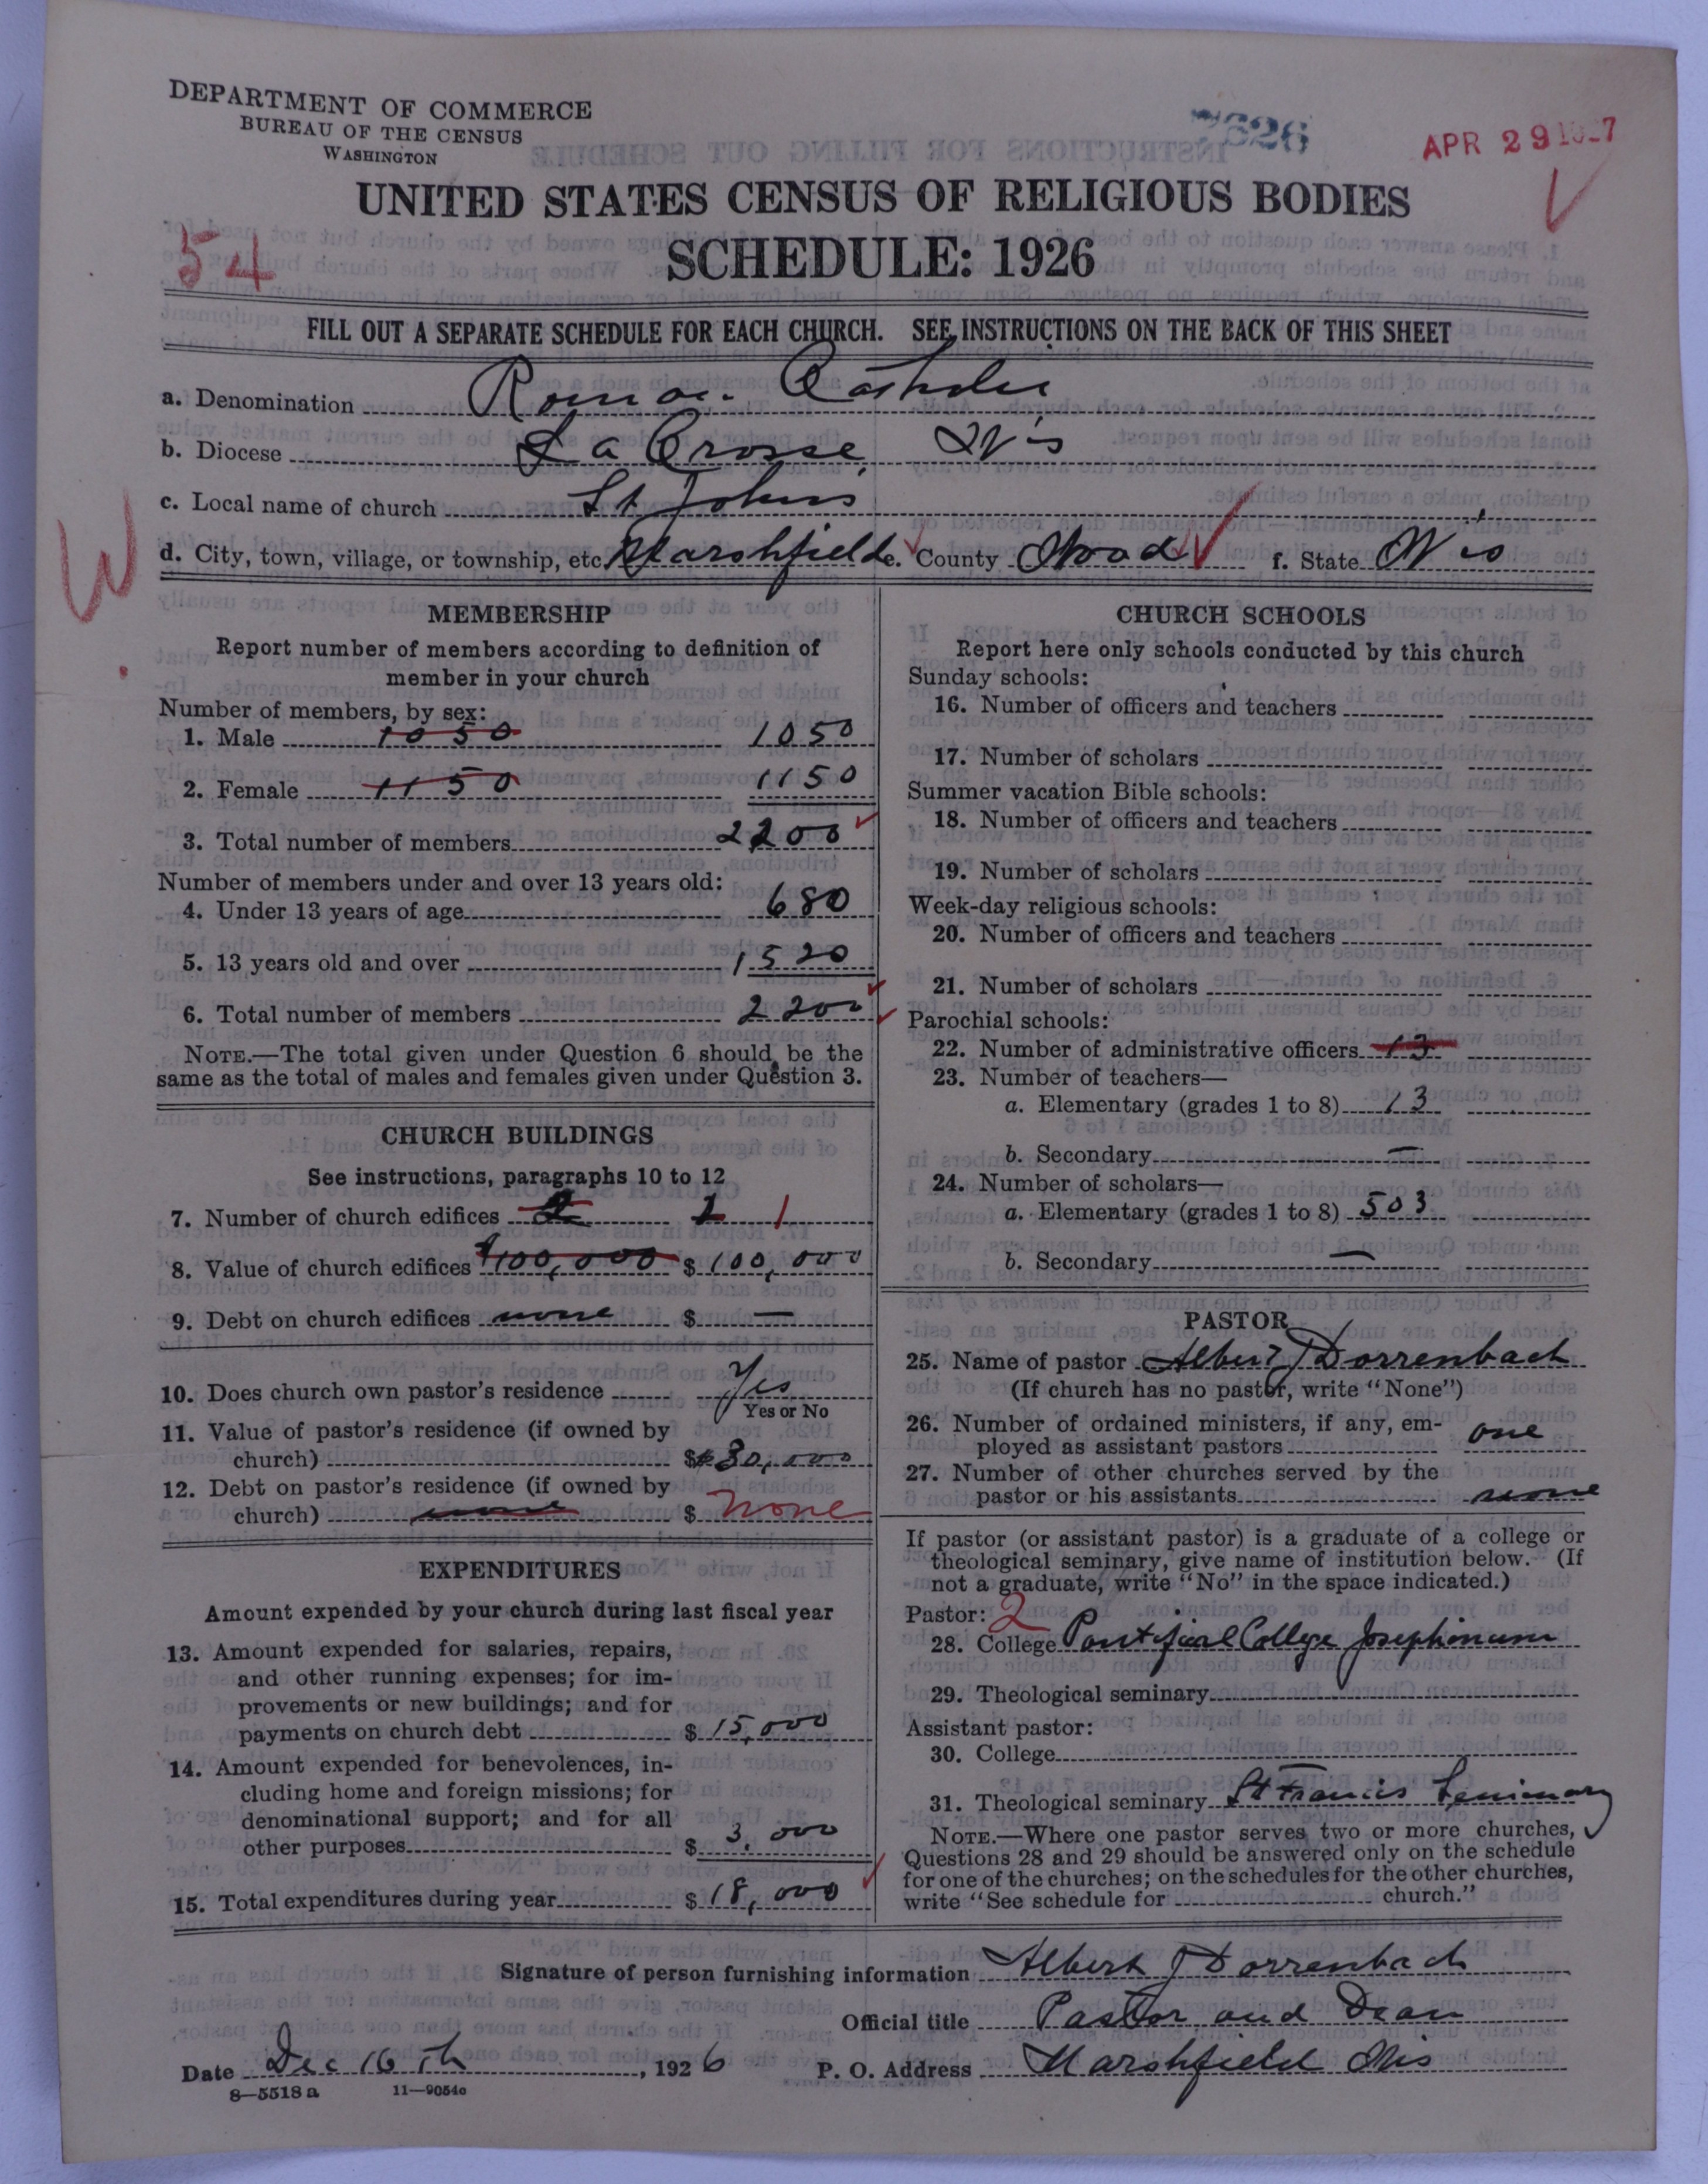 DEPARTMENT OF COMMERCE
BUREAU OF THE CENSUS
WASHINGTON
APR 29
UNITED STATES CENSUS OF RELIGIOUS BODIES
54
SCHEDULE: 1926
FILL OUT A SEPARATE SCHEDULE FOR EACH CHURCH. SEE INSTRUCTIONS ON THE BACK OF THIS SHEET
a. Denomination Roman Catholic
b. Diocese La Crosse, Wis
c. Local name of church St Johns
d. City, town, village, or township, etc. Marshfield e. County Wood f. State Wis
W.
MEMBERSHIP
Report number of members according to definition of
member in your church
Number of members, by sex:
1. Male 1050 1050
2. Female 1150 1150
3. Total number of members 2200
Number of members under and over 13 years old:
4. Under 13 years of age 680
5. 13 years old and over 1520
6. Total number of members 2200
NOTE.—The total given under Question 6 should be the
same as the total of males and females given under Question 3.
CHURCH BUILDINGS
See instructions, paragraphs 10 to 12
7. Number of church edifices 2 1 1
8. Value of church edifices $100,000 $ 100,000
9. Debt on church edifices none $ —
10. Does church own pastor's residence Yes
Yes or No
11. Value of pastor's residence (if owned by
church) $ 30,000
12. Debt on pastor's residence (if owned by
church) none $ none
EXPENDITURES
Amount expended by your church during last fiscal year
13. Amount expended for salaries, repairs,
and other running expenses; for im-
provements or new buildings; and for
payments on church debt $ 15,000
14. Amount expended for benevolences, in-
cluding home and foreign missions; for
denominational support; and for all
other purposes $ 3,000
15. Total expenditures during year $ 18,000
CHURCH SCHOOLS
Report here only schools conducted by this church
Sunday schools:
16. Number of officers and teachers
17. Number of scholars
Summer vacation Bible schools:
18. Number of officers and teachers
19. Number of scholars
Week-day religious schools:
20. Number of officers and teachers
21. Number of scholars
Parochial schools:
22. Number of administrative officers 13
23. Number of teachers—
a. Elementary (grades 1 to 8) 13
b. Secondary —
24. Number of scholars—
a. Elementary (grades 1 to 8) 503
b. Secondary —
PASTOR
25. Name of pastor Albert J Dorrenbach
(If church has no pastor, write "None")
26. Number of ordained ministers, if any, em-
ployed as assistant pastors one
27. Number of other churches served by the
pastor or his assistants none
If pastor (or assistant pastor) is a graduate of a college or
theological seminary, give name of institution below. (If
not a graduate, write "No" in the space indicated.)
Pastor: 2
28. College Pontifical College Josephinum
29. Theological seminary
Assistant pastor:
30. College —
31. Theological seminary St Francis Seminary
NOTE.—Where one pastor serves two or more churches,
Questions 28 and 29 should be answered only on the schedule
for one of the churches; on the schedules for the other churches,
write "See schedule for church."
Signature of person furnishing information Albert J Dorrenbach
Official title Pastor and Dean
Date Dec 16th, 1926 P. O. Address Marshfield Wis
8—5518 a 11—9054a